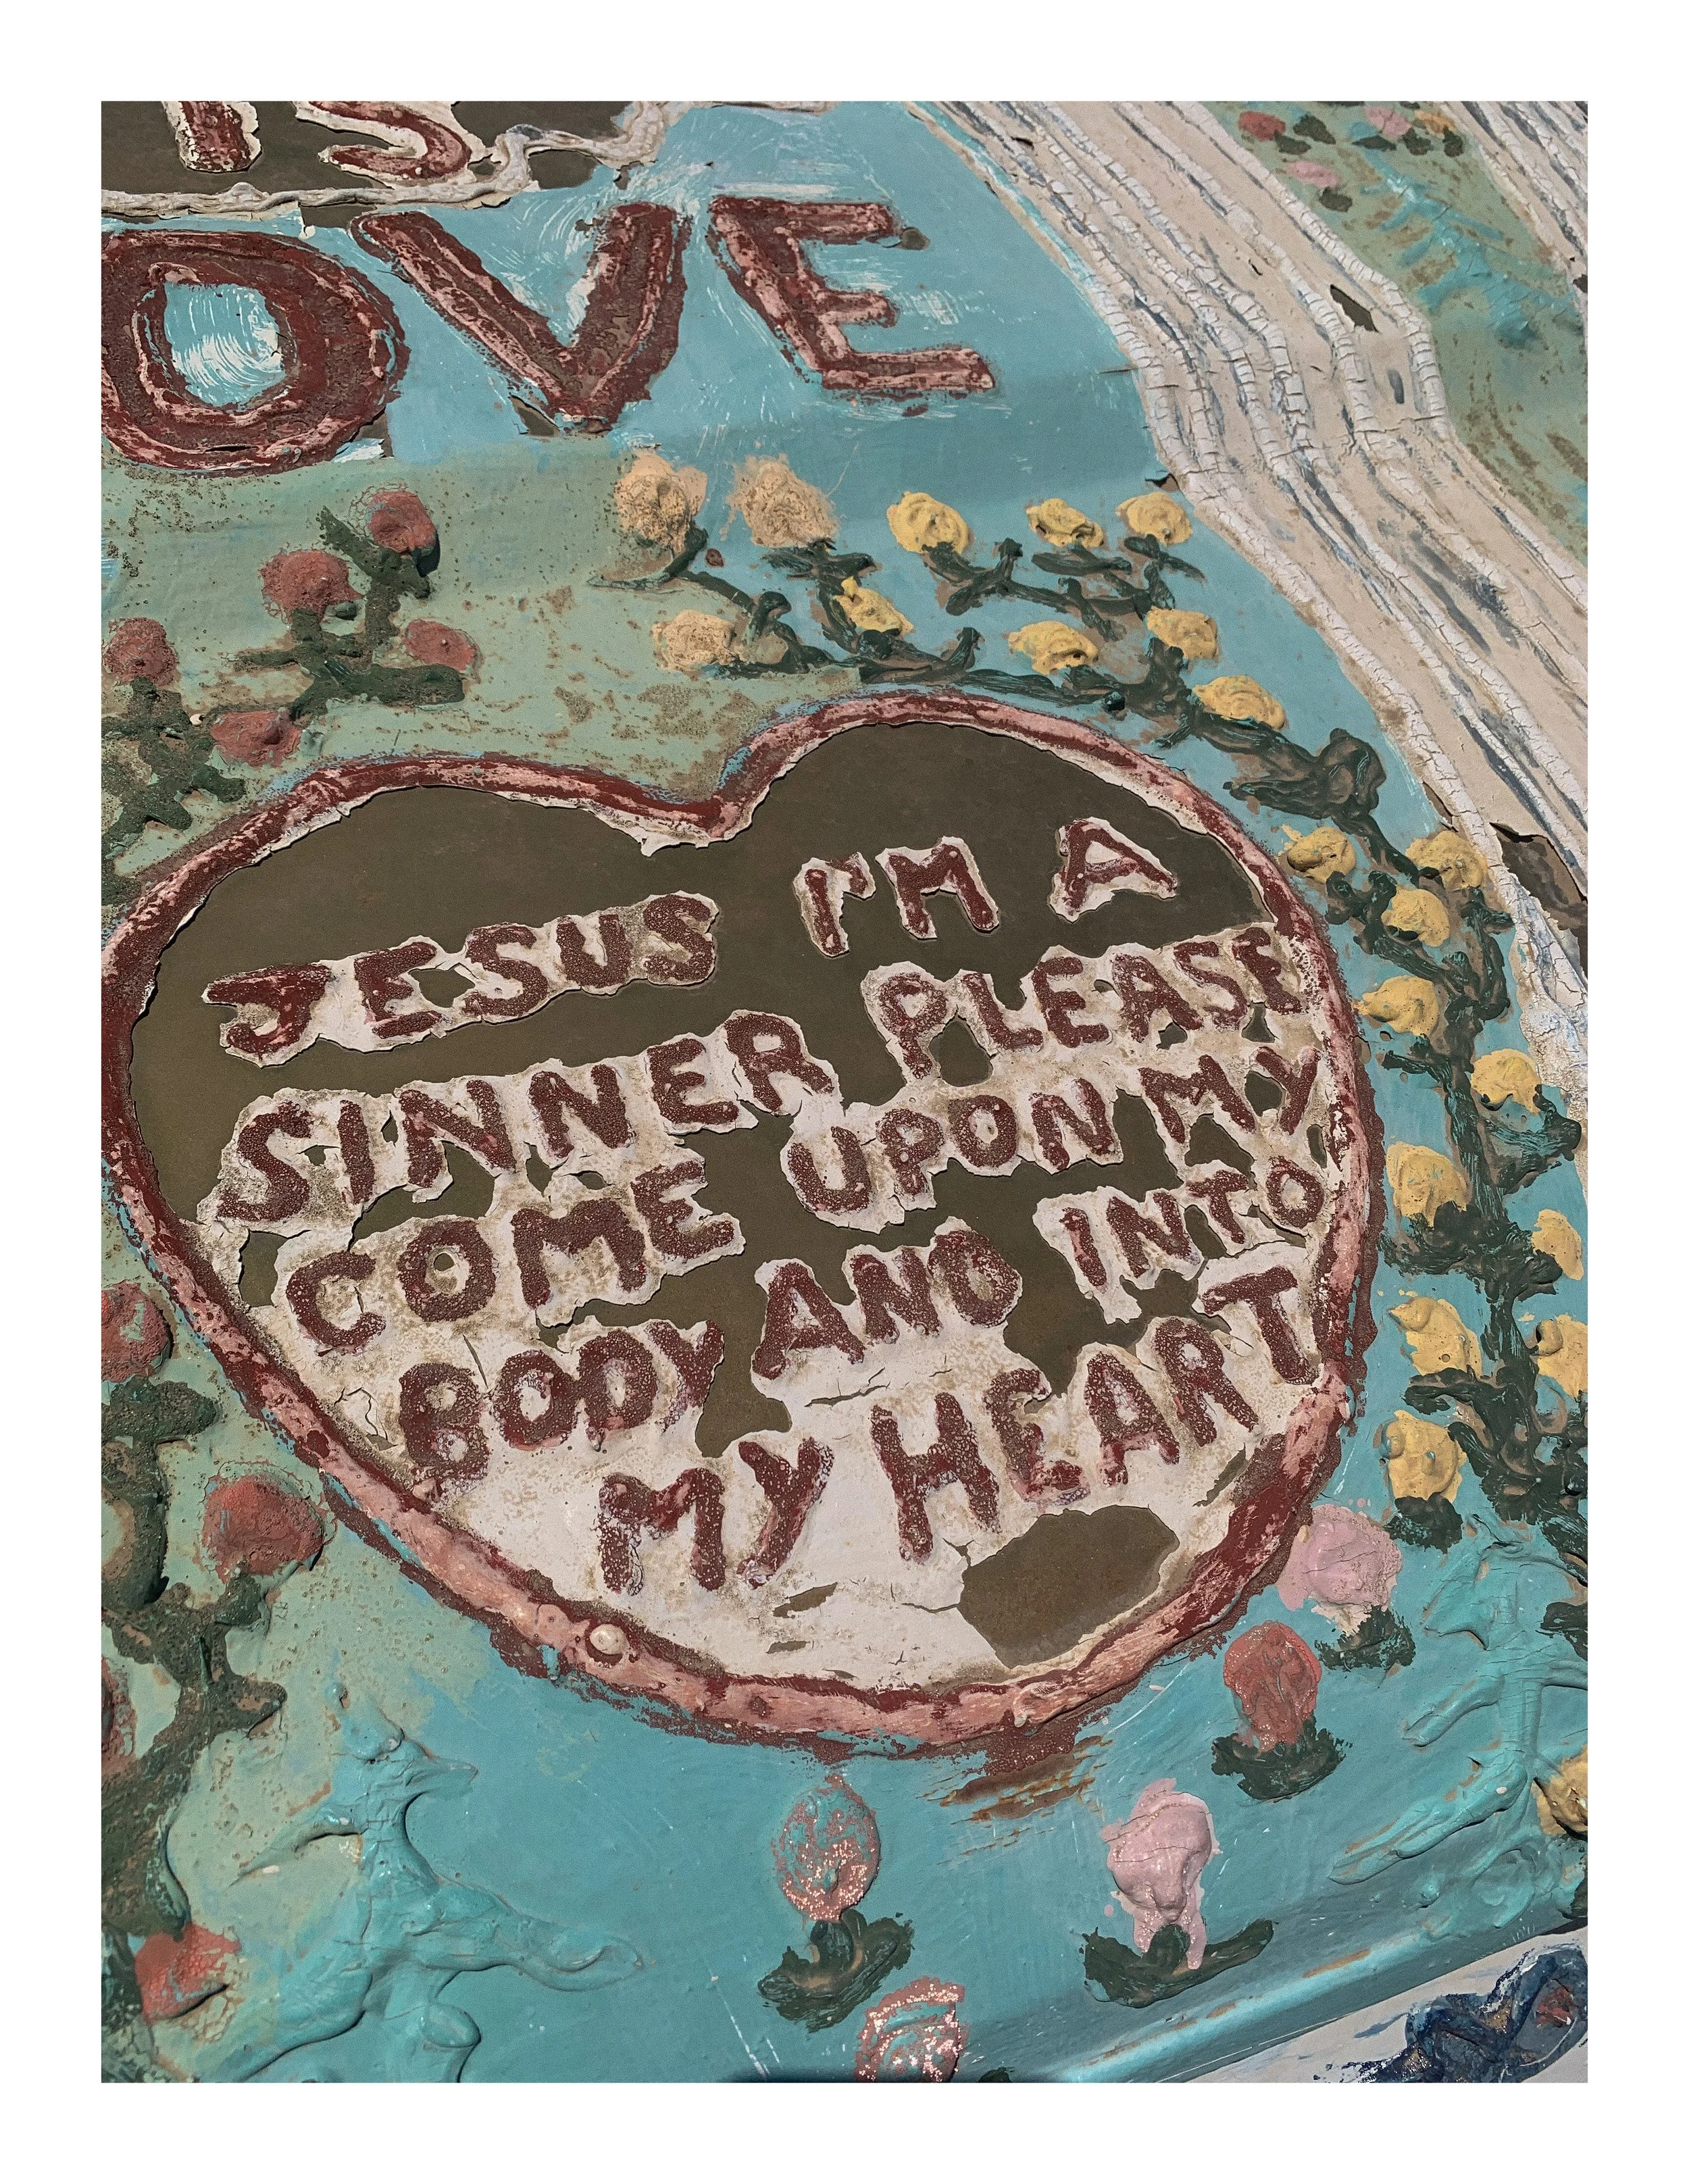 IS
OVE
JESUS I'M A
SINNER PLEASE
COME UPON MY
BODY AND INTO
MY HEART